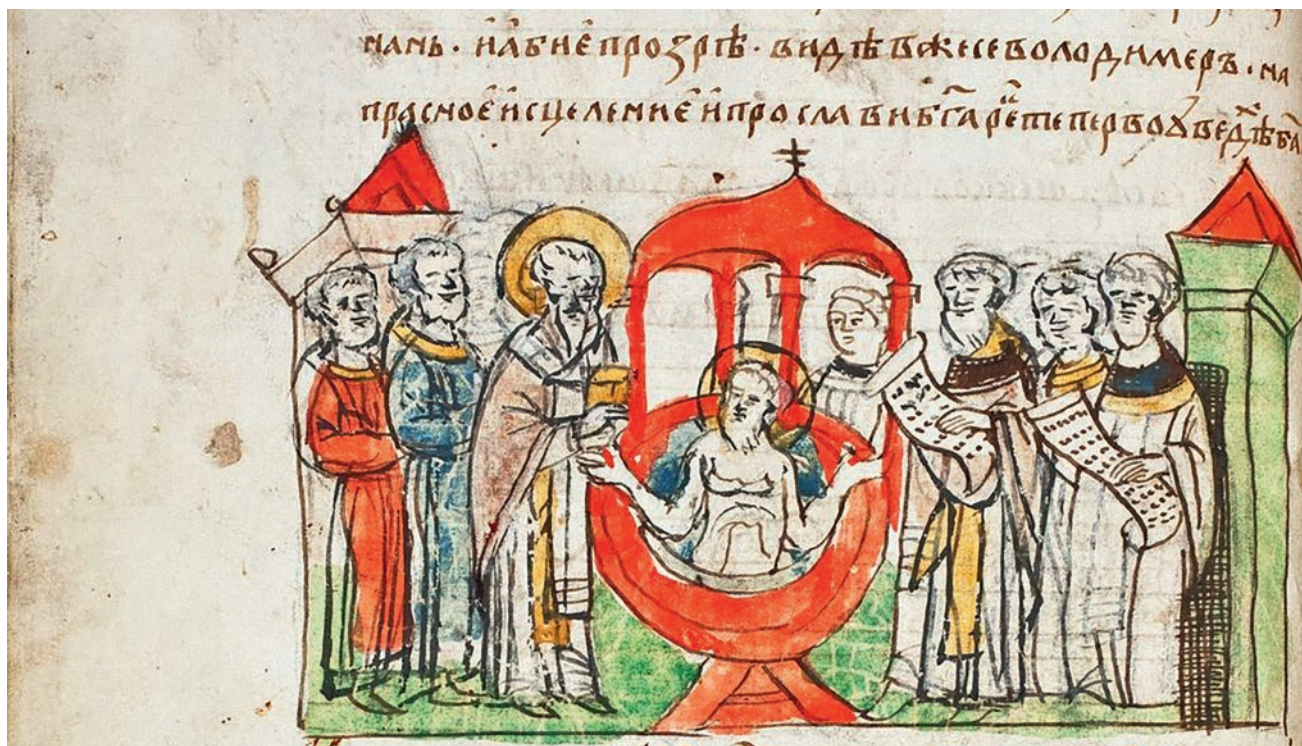 нань · и абие прозрѣ · видѣвже се володимеръ · на
прасное исцеление и прослави б҃га ре҃ч то первое оувед҃ѣ б҃а